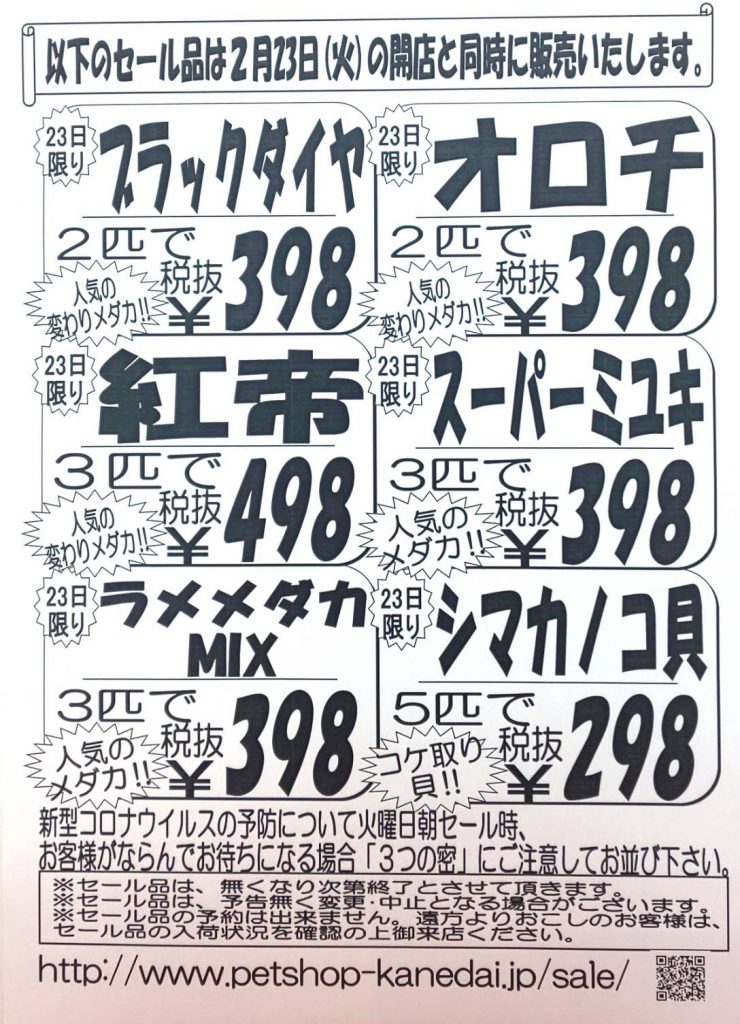 以下のセール品は２月23日(火)の開店と同時に販売いたします。
23日
限り
ブラックダイヤ
２匹で
税抜
￥398
人気の
変わりメダカ!!
23日
限り
オロチ
２匹で
税抜
￥398
人気の
変わりメダカ!!
23日
限り
紅帝
３匹で
税抜
￥498
人気の
変わりメダカ!!
23日
限り
スーパーミユキ
３匹で
税抜
￥398
人気の
メダカ!!
23日
限り
ラメメダカ
MIX
３匹で
税抜
￥398
人気の
メダカ!!
23日
限り
シマカノコ貝
５匹で
税抜
￥298
コケ取り
貝!!
新型コロナウイルスの予防について火曜日朝セール時、
お客様がならんでお待ちになる場合「３つの密」にご注意してお並び下さい。
※セール品は、無くなり次第終了とさせて頂きます。
※セール品は、予告無く変更・中止となる場合がございます。
※セール品の予約は出来ません。遠方よりおこしのお客様は、
セール品の入荷状況を確認の上御来店ください。
http://www.petshop-kanedai.jp/sale/